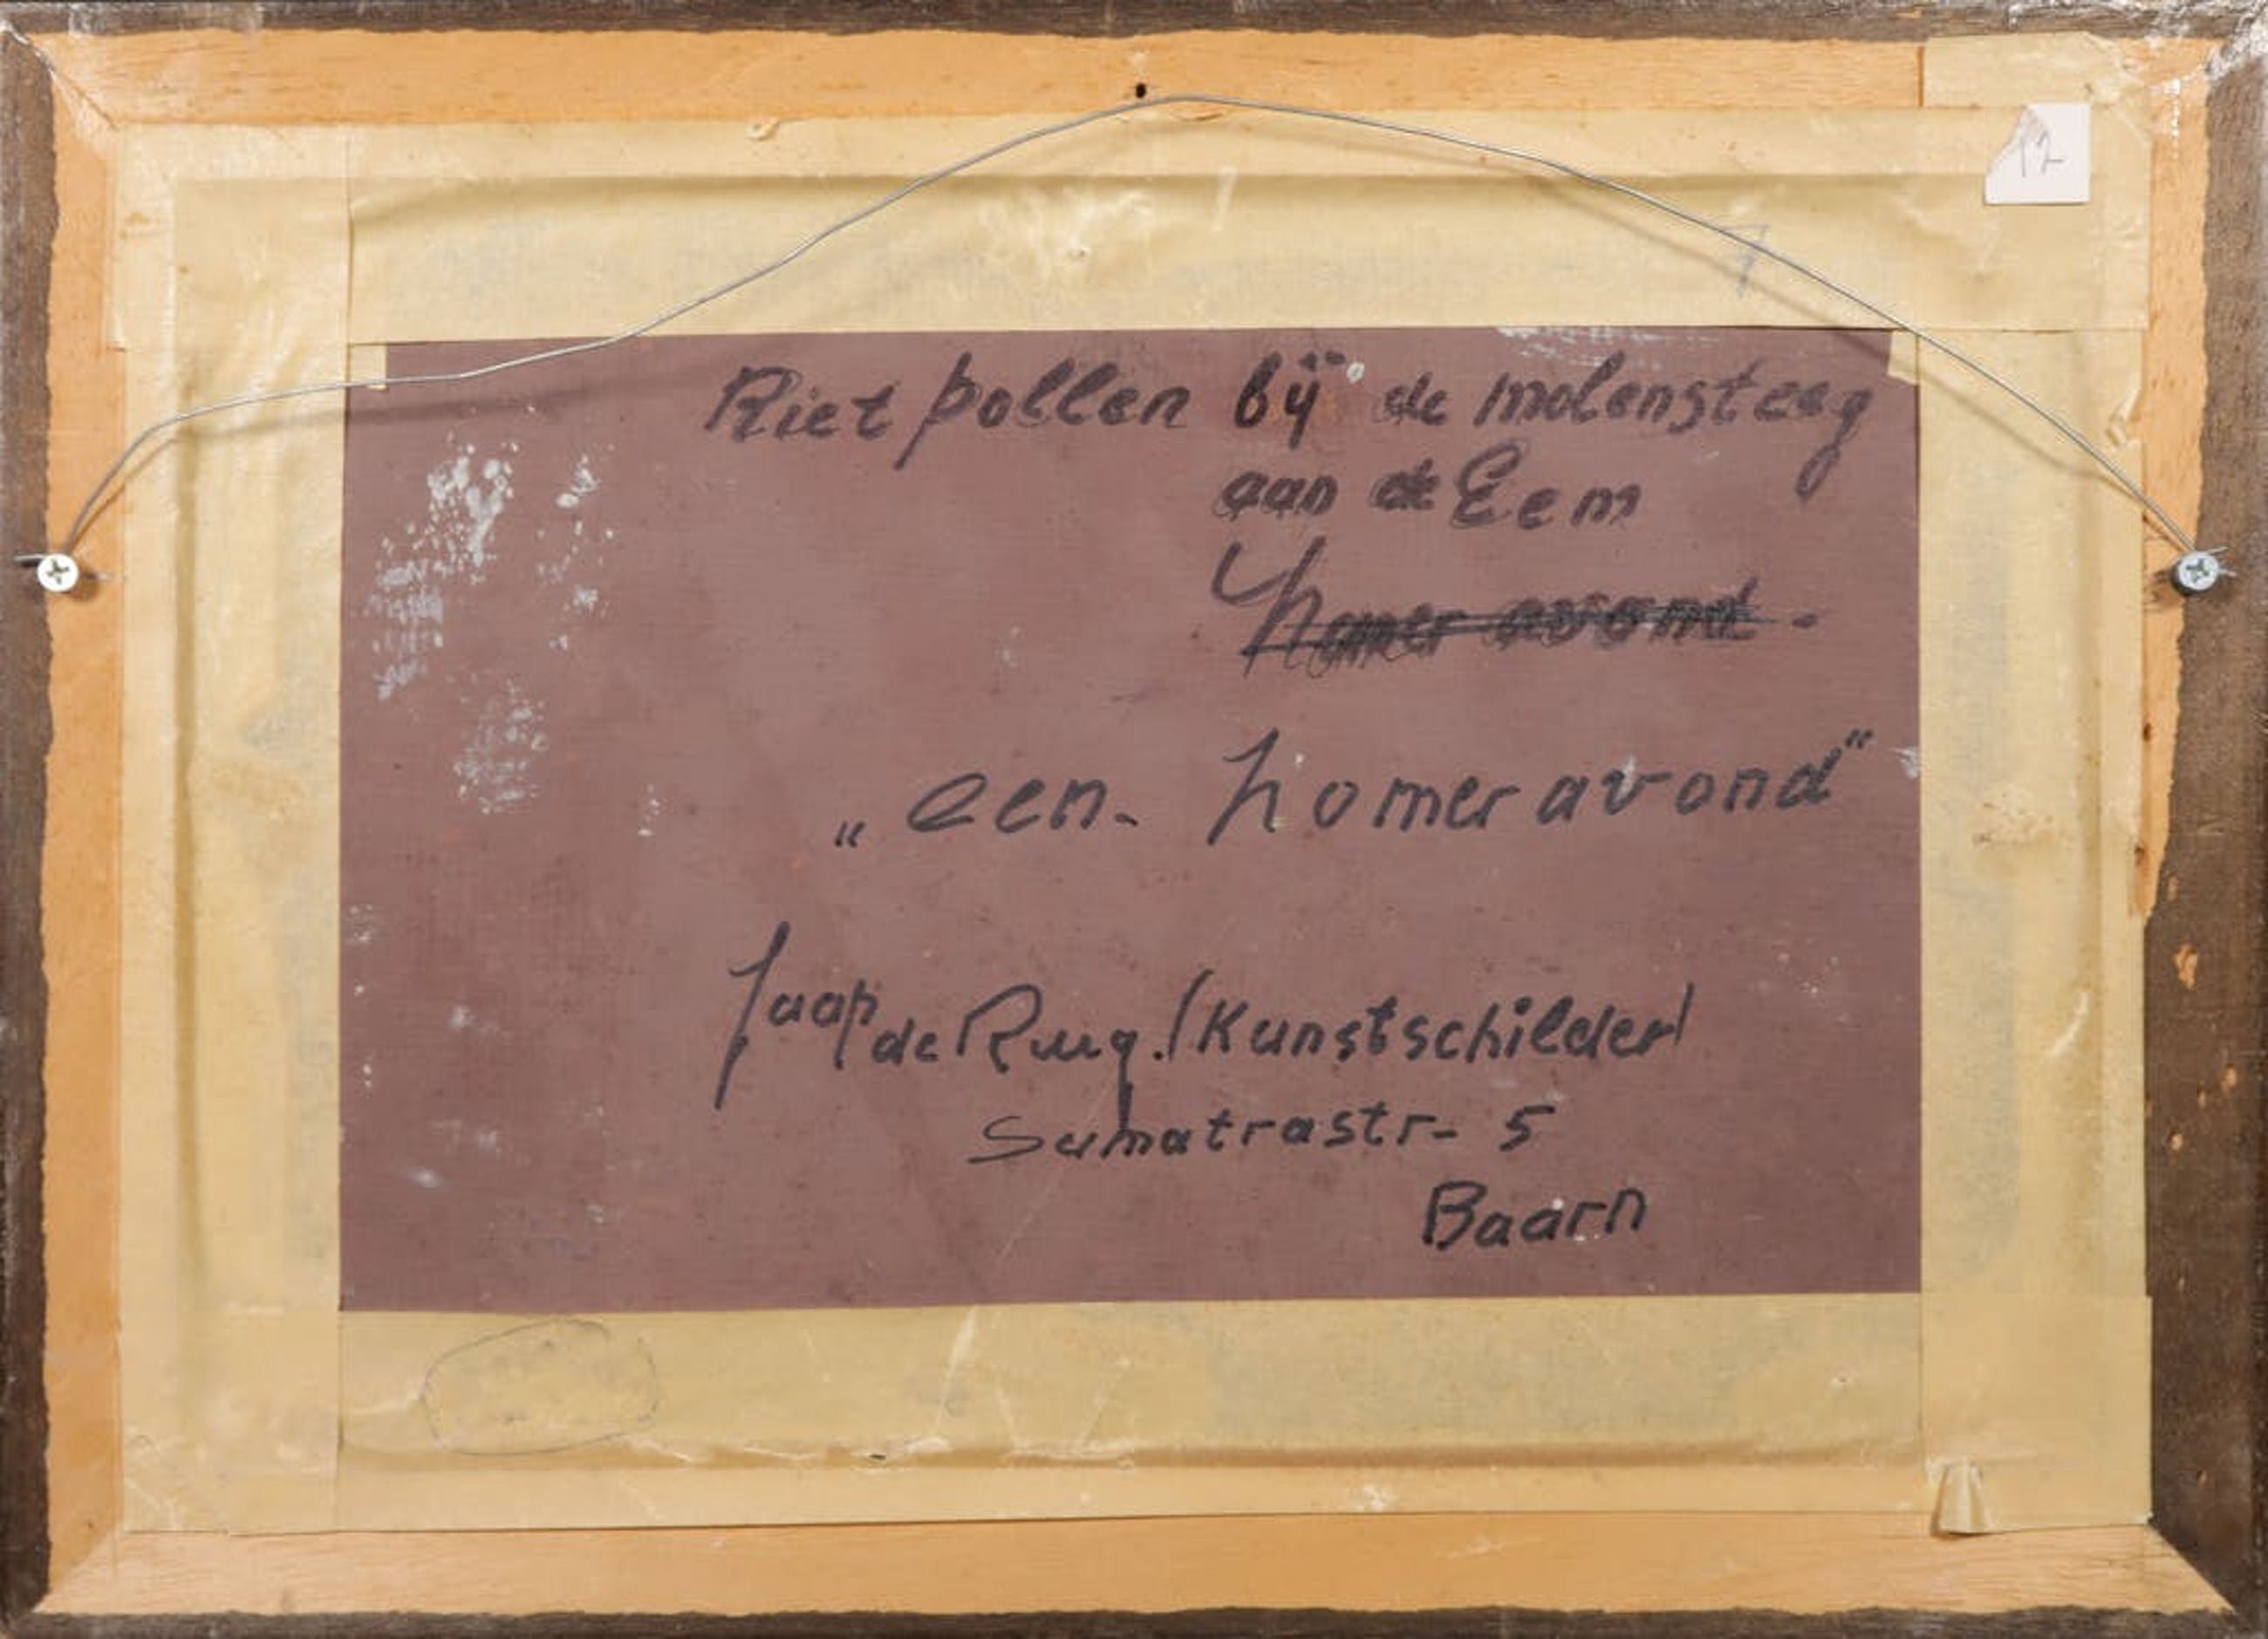 12
7
Rietpollen bij de molensteeg
aan de Eem
Zomer avond.
„een. Zomeravond"
Jaap de Ruig. (Kunstschilder)
Sumatrastr- 5
Baarn